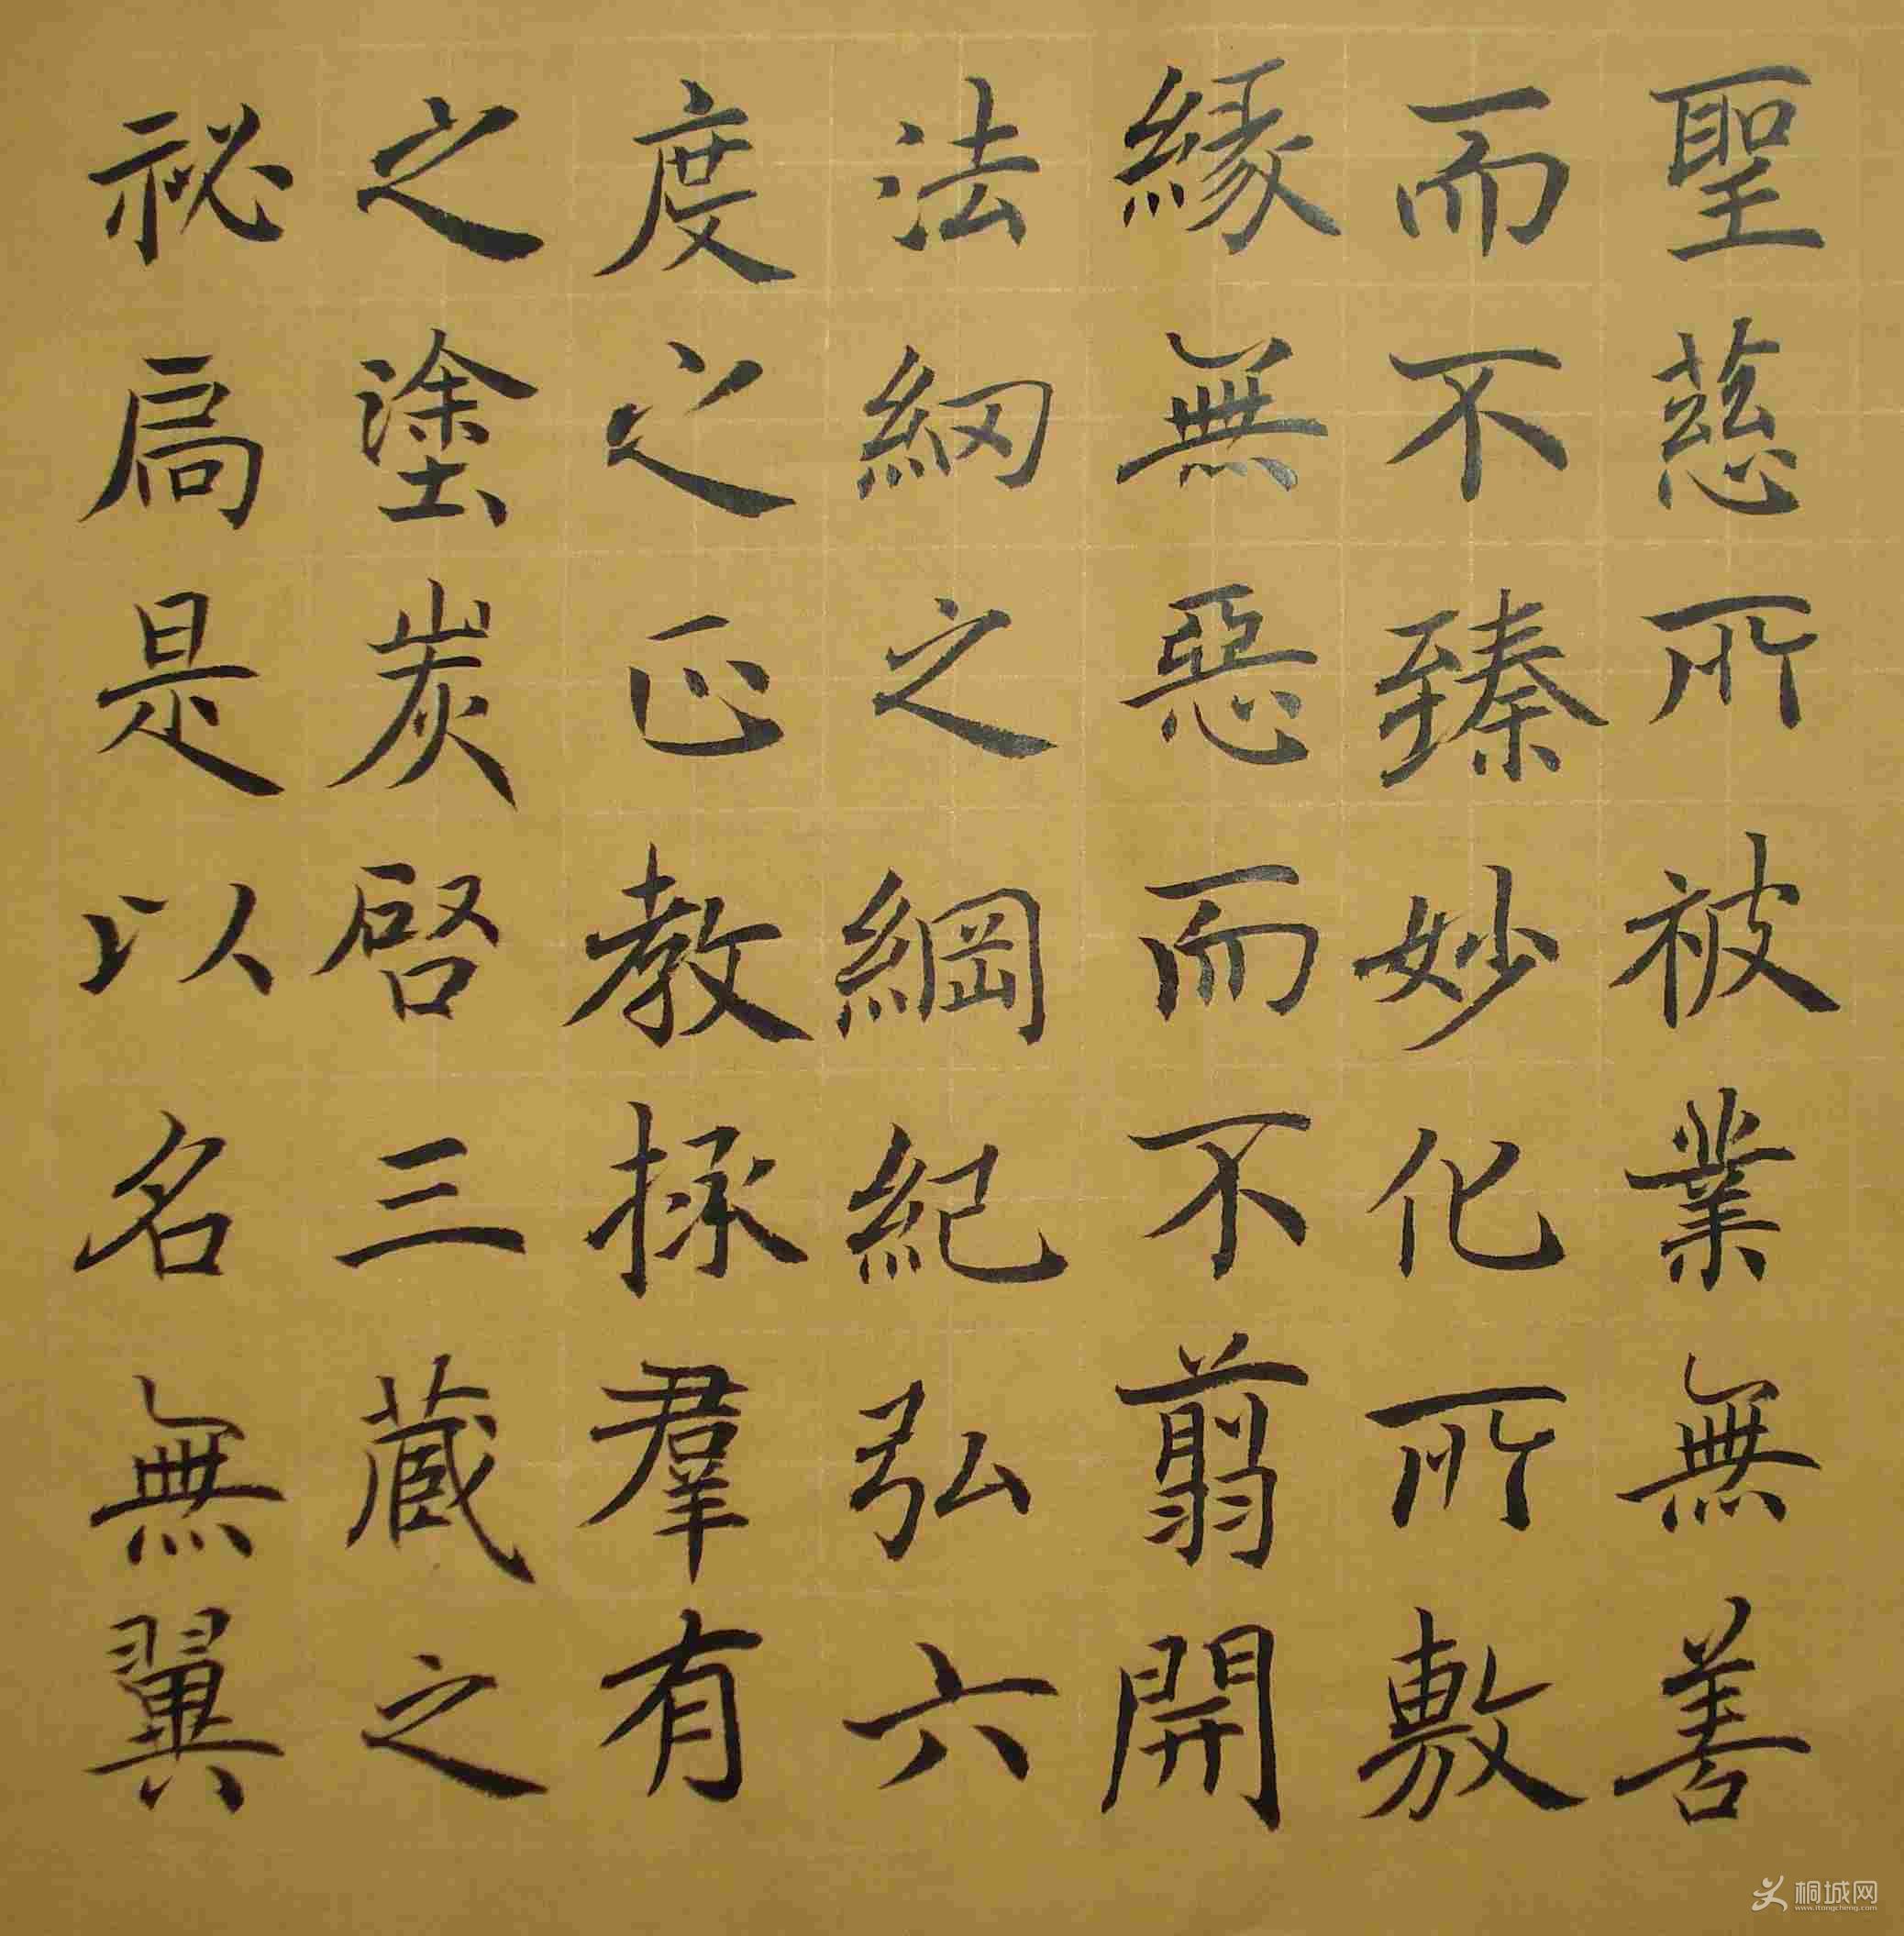 聖慈所被業無善
而不臻妙化所敷
緣無惡而不翦開
法網之綱紀弘六
度之正教拯羣有
之塗炭啓三藏之
祕扃是以名無翼
桐城网
www.itongcheng.com